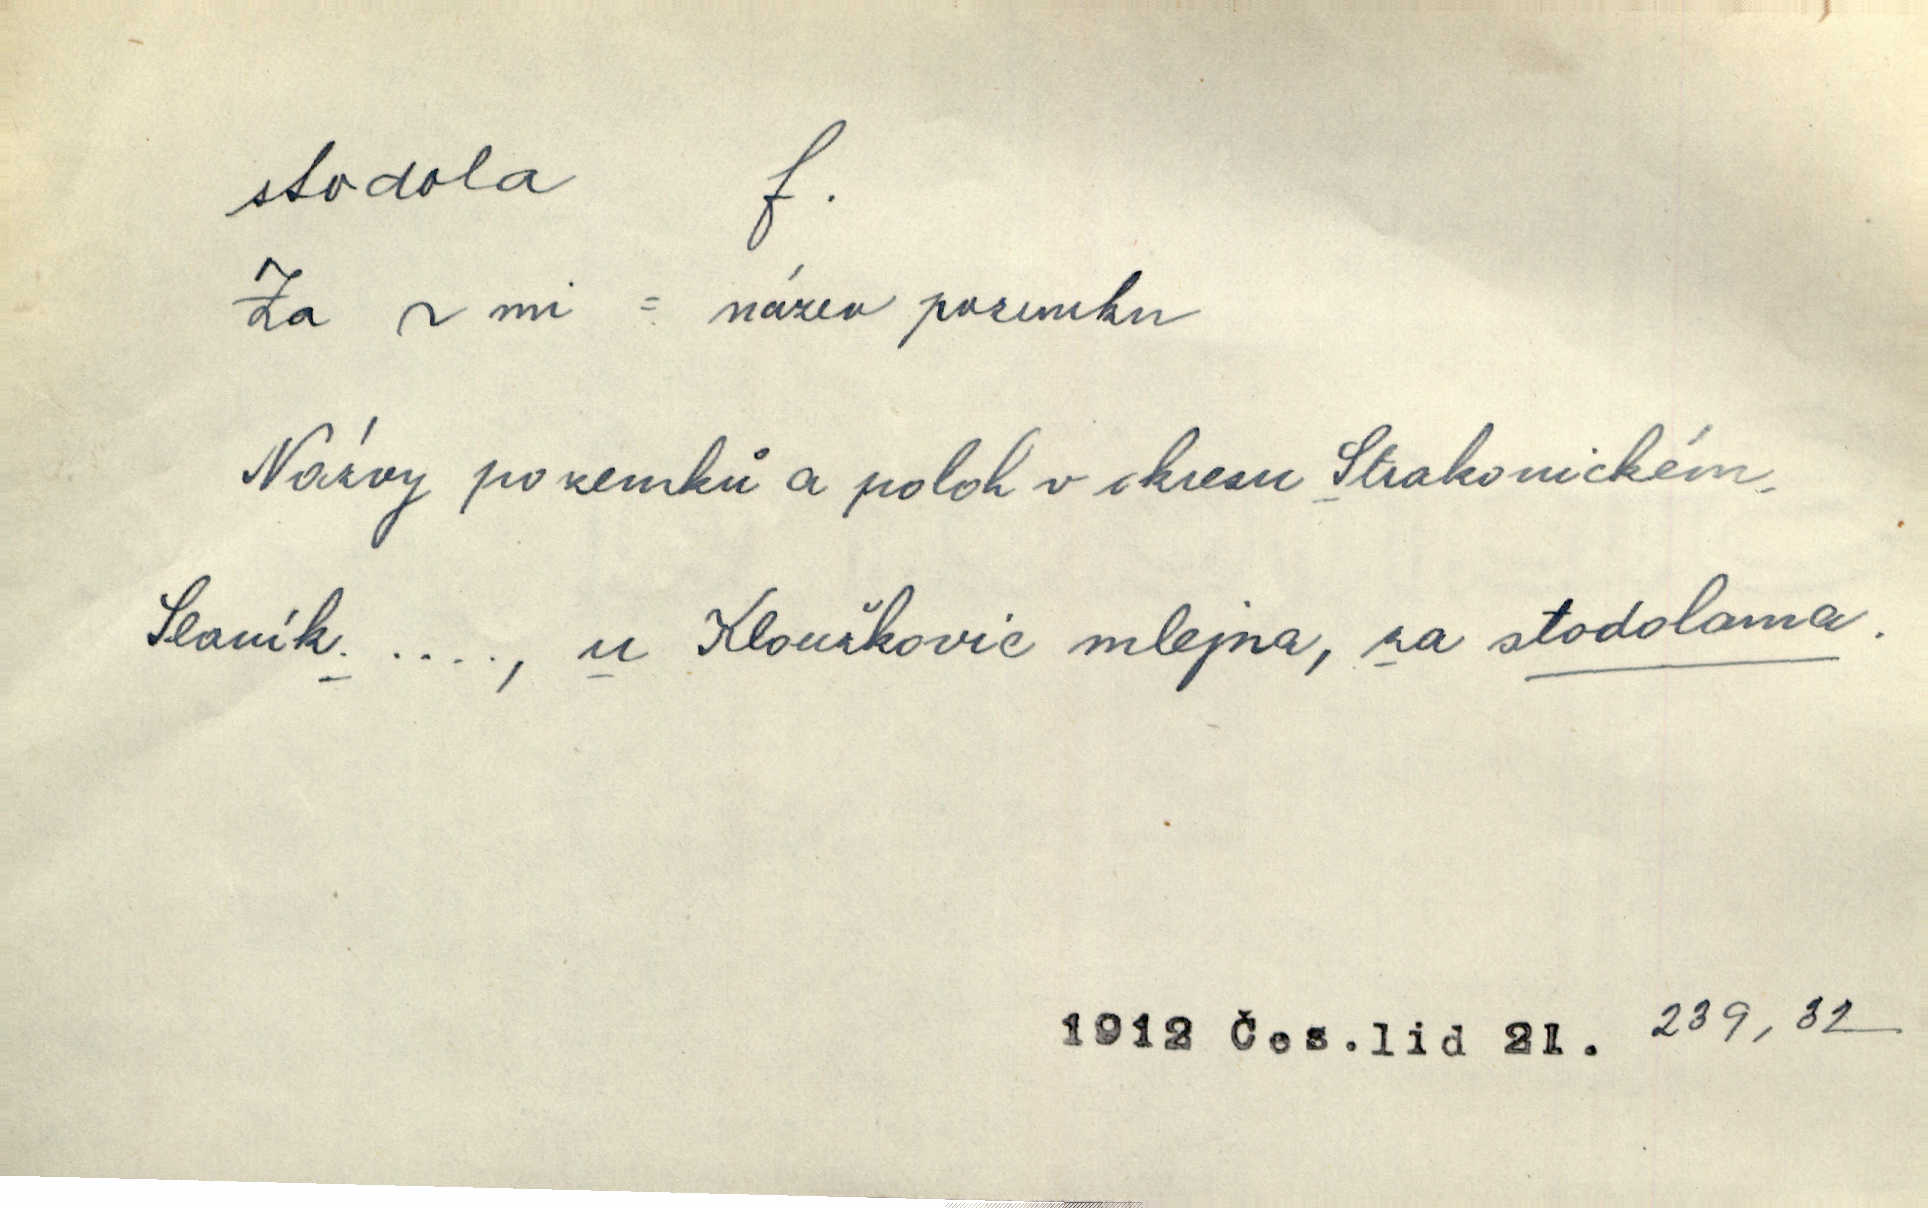 stodola f.
Za ~ mi = název pozemku
Názvy pozemků a poloh v okresu Strakonickém.
Slaník. ...., u Klouzkovic mlejna, za stodolama.
1912 Čes.lid 21. 239, 32